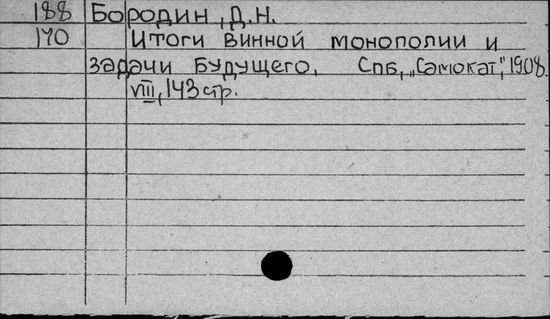 188 Бородин, Д.Н.
170 Итоги винной монополии и
задачи будущего. Спб, „Самокат", 1908
VIII, 143 стр.